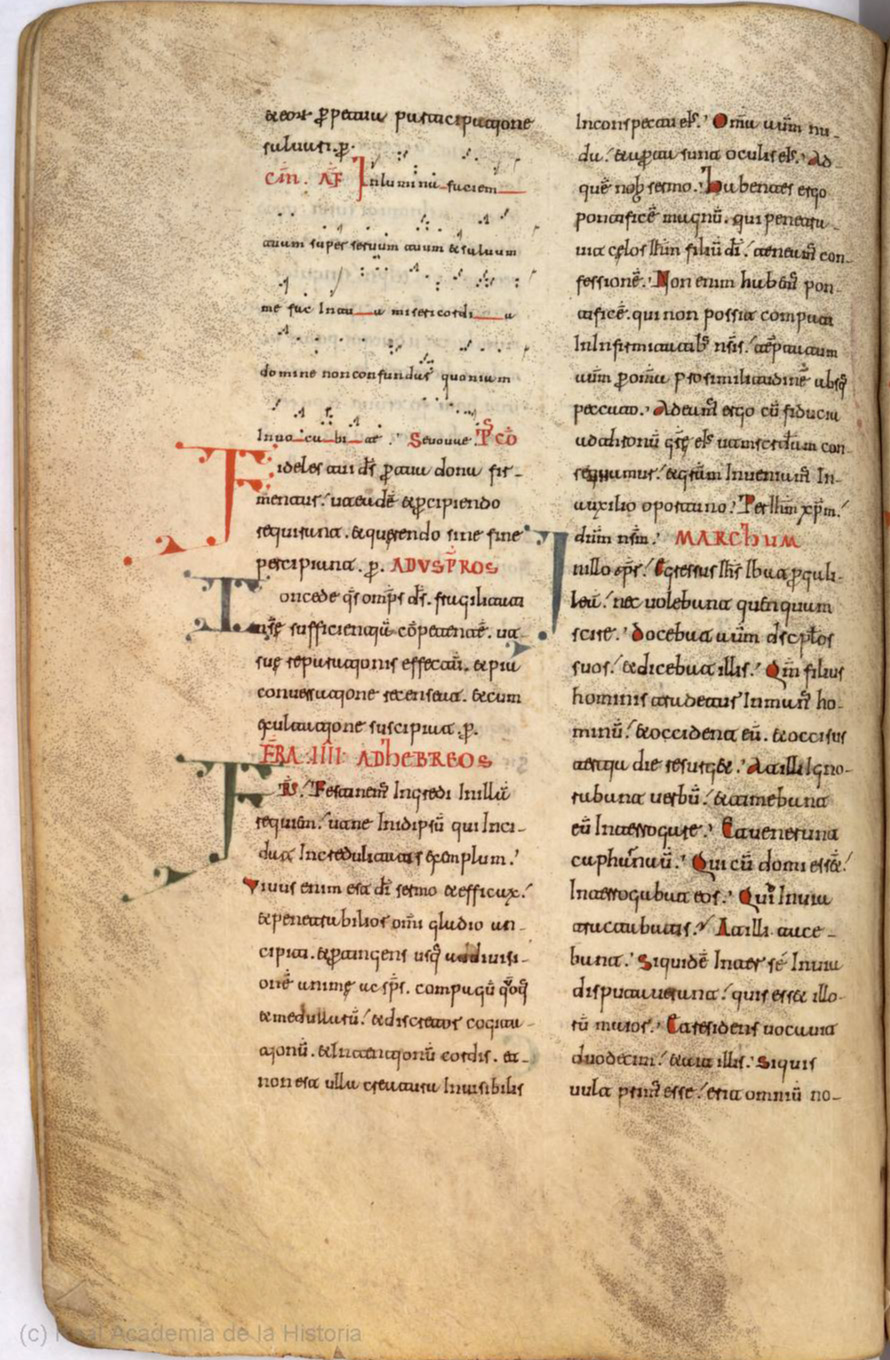 p̄petua participatione
saluari. p̄.
CM̄. AF̄ Inlumina faciem
tuam super seruum tuum & saluum
me fac In tua misericordia
domine non confundar quoniam
Inuocabi te. Seuouae P̄S CŌ
Fideles tui d̄s p̄ tua dona fir-
mentur. ut eadē & p̄cipiendo
requirant. & querendo sine fine
percipiant. p̄. ADVSP̄ROS
Concede q̄s omp̄s d̄s. fragilitati
nr̄ę sufficientiā cōpetentē. ut
suę reparationis effectū. & pia
conuersatione recenseat. & cum
exultatione suscipiat. p̄.
F̄RA IIII ADhEBREOS
FR̄S. Festinem̄ Ingredi In illā
requiem. ut ne In idipsū quis Inci-
dat Incredulitatis exemplum.
Viuus enim est dī sermo & efficax.
& penetrabilior om̄i gladio an-
cipiti. & p̄tingens usq ad diuisi-
onē animę ac sp̄s. compagū q̄oq
& medullarū. & discretor cogita-
tionū. & Intentionū cordis. et
non est ulla creatura Inuisibilis
In conspectu eīs. Om̄a aūm nu-
da. & ap̄ta sunt oculis eīs. Ad
quē nob̄ sermo. Habentes ergo
pontificē magnū. qui penetra-
uit cęlos ih̄m filiū dī. teneam̄ con-
fessionē. Non enim habem̄ pon-
tificē. qui non possit compati
In Infirmitatib̄ nr̄is. teptatum
aūm p̄ om̄ia p̄ similitudinē absq
peccato. Adeam̄ ergo cū fiducia
ad thronū grę eīs ut misc̄dam con-
sequamur. & grām Inueniam̄ In
auxilio oportuno. Per ih̄m xp̄m.
dn̄m nr̄m. MARCHUM
In illo tp̄r. Egressus ih̄s Ibat p̄ gali-
leā. nec uolebant quēnquam
scire. Docebat aūm discp̄los
suos. & dicebat illis. Qm̄ filius
hominis tradetur In man̄ ho-
minū. & occident eū. & occisus
tertia die resurget. At illi Igno-
rabant uerbū. & timebant
eū Interrogare. Et uenerunt
capharnaū. Qui cū domi esset.
Interrogabat eos. Quid In uia
tractabatis. At illi tace-
bant. Siquidē Inter se In uia
disputauerunt. quis esset illo-
rū maior. Et residens uocauit
duodecim. & ait illis. Siquis
uult prim̄ esse. erit omniū no-
(c) Real Academia de la Historia